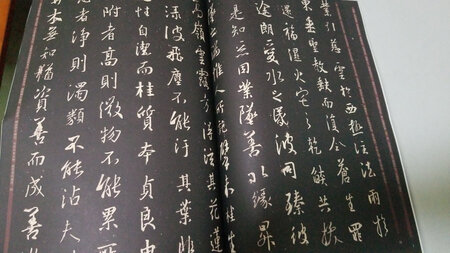 業引慈雲於西極注法雨於
東垂聖教缺而復全蒼生罪
還福濕火宅之乾焰共拔
途朗愛水之昏波同臻彼
是知惡因業墜善以緣昇
惟人所託桂生
高嶺雲露方得泫其花蓮
淥波飛塵不能污其葉非
性自潔而桂質本貞良由
附者高則微物不能累所
憑者淨則濁類不能沾夫
木無知猶資善而成善